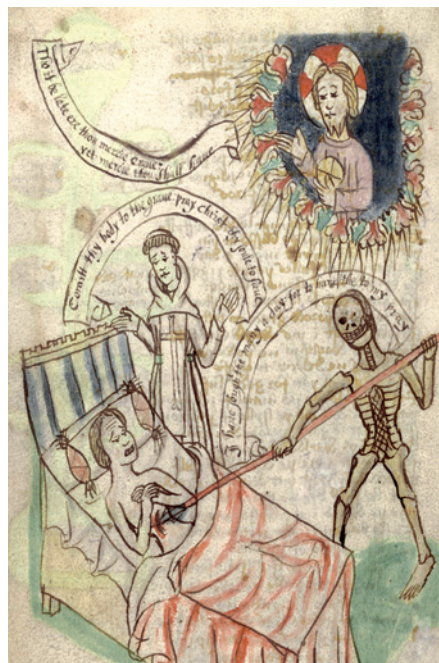 Tho it be late ere thou mercie craue:
yet mercie thou shall haue
Comitt thy body to the graue pray christ thy saule to saue
I haue soughte the many a day for to haue the to my pray